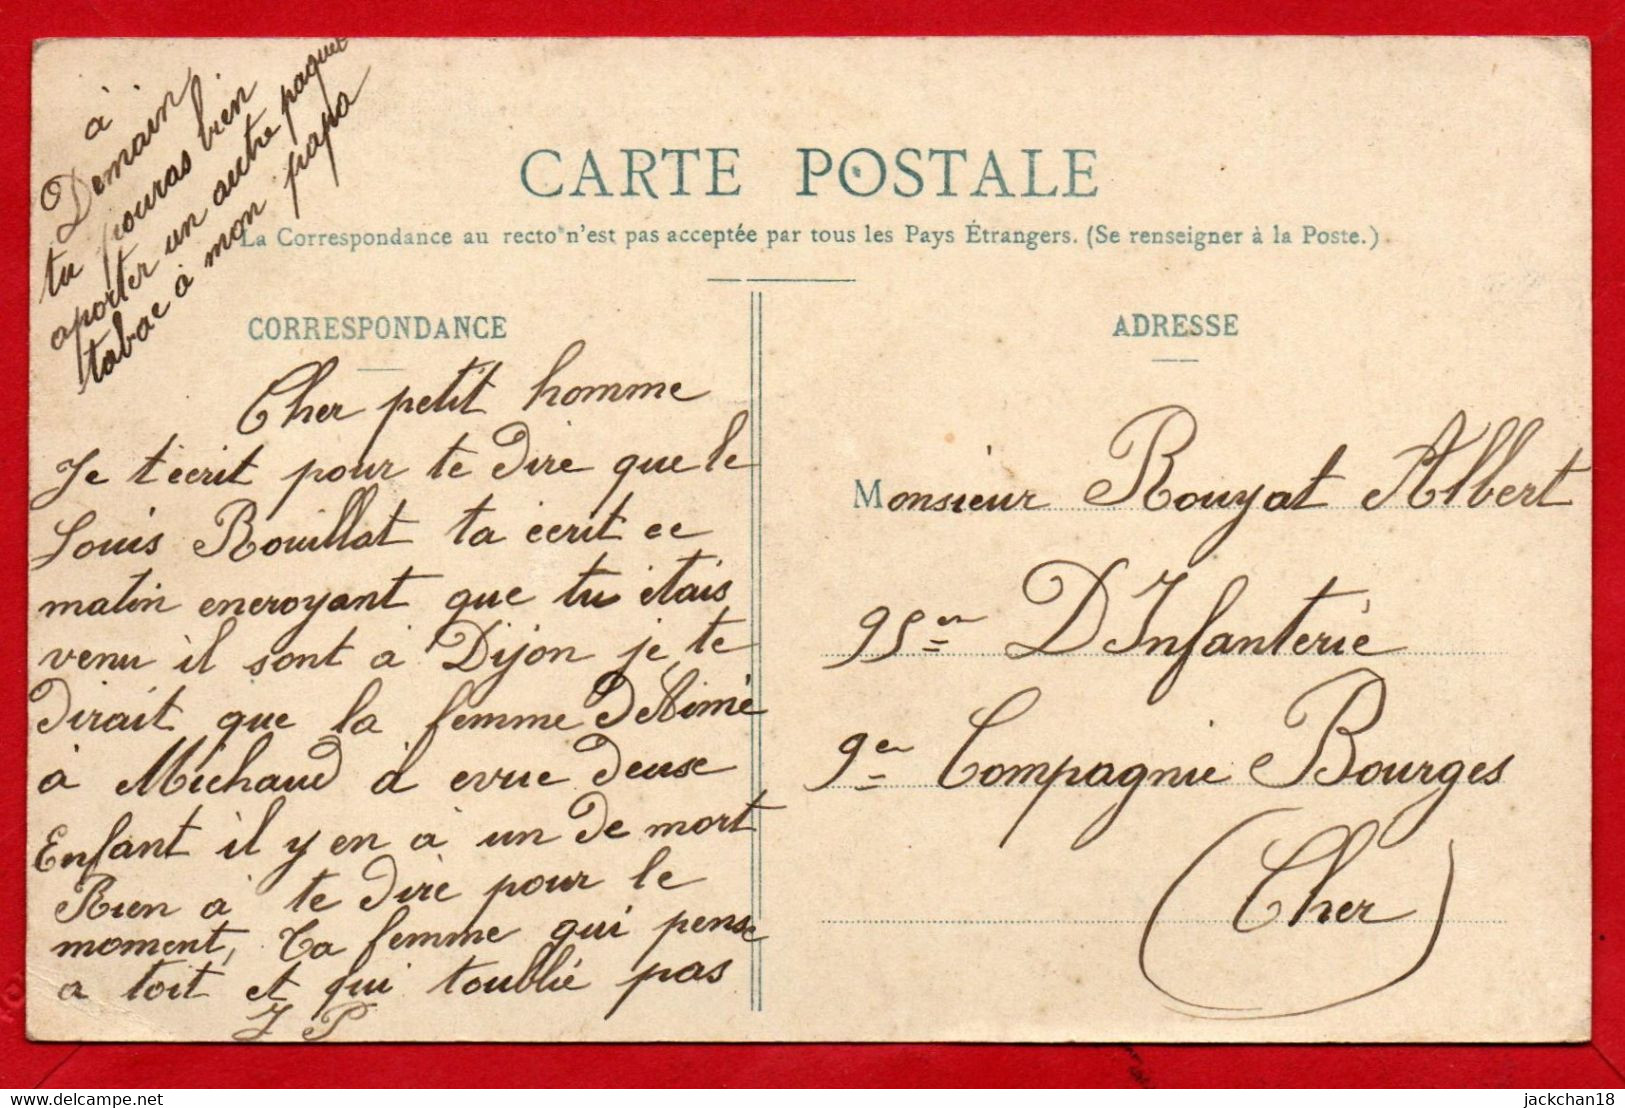 à
Demain
tu pouras bien
aporter un autre paquet
tabac à mon papa
CARTE POSTALE
La Correspondance au recto n'est pas acceptée par tous les Pays Étrangers. (Se renseigner à la Poste.)
CORRESPONDANCE
Cher petit homme
Je t'écrit pour te dire que le
Louis Rouillat ta écrit ce
matin encroyant que tu étais
venu il sont à Dijon je te
dirait que la femme D Aimé
à Michaud à evue deuse
Enfant il y en à un de mort
Rien à te dire pour le
moment, Ta femme qui pense
a toit et qui toublié pas
J P
ADRESSE
Monsieur Rouyat Albert
95en D'Infanterie
9en Compagnie Bourges
(Cher)
jackchan18